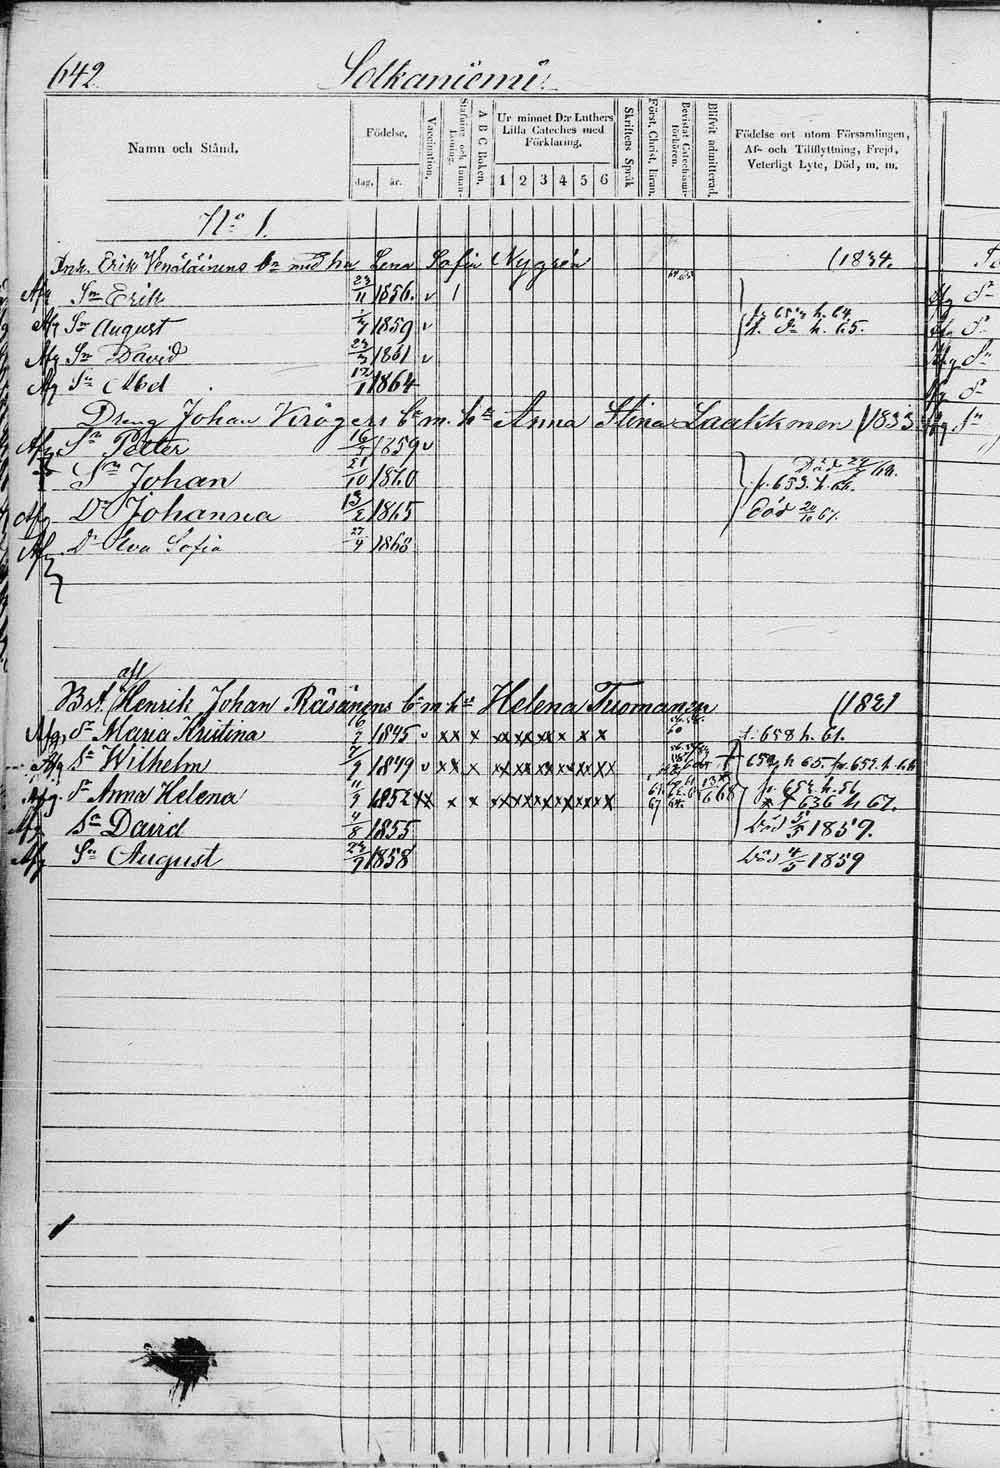 642. Solkaniemi.
Namn och Stånd.
Födelse.
dag. år.
Vaccination.
Stafning och Innan-Läsning.
A B C Boken.
Ur minnet D:r Luthers Lilla Cateches med Förklaring.
1 2 3 4 5 6
Skriftens Språk
Först. Christ. läran.
Bevistat Catechismi-förhören.
Blifvit admitterad.
Födelse ort utom Församlingen,
Af- och Tillflyttning, Frejd,
Veterligt Lyte, Död, m. m.
No 1.
Erik Venäläinens bn med hu Lena Sofia Nygrén (1834.
Afg Sn Erik 23/11 1856. v 1
Afg Sn August 1859 v f. 65. h. 64. h. 65.
Afg Sn David 1861 v
Afg Sn Abel 12/1 1864
Dreng Johan Krögers bn m. hu Anna Stina Laakkonen (1833
Afg. Sn Petter 1859 v
Sn Johan 21/10 1860 f. 653. h. 64.
Afg Dr Johanna 1865 död 20/10 67.
Afg Dr Eva Sofia 27/4 1868
afl
Bst. Henrik Johan Räsänens bn m hu Helena Tuomanen (1821
Afg. Dr Maria Kristina 1845 v x x x x x x x x x x f. 658 h. 61.
Afg Sn Wilhelm 1849 v x x x x x x x x x 659 h 65. fr 652. h. 66
Afg. Dr Anna Helena 1852 x x x x x x x x x x 13/6 68 fr. 652. h. 56 f 636 h 67.
Afg Sn David 4/8 1855 död 5/5 1859.
Afg Sn August 1858 död 4/5 1859